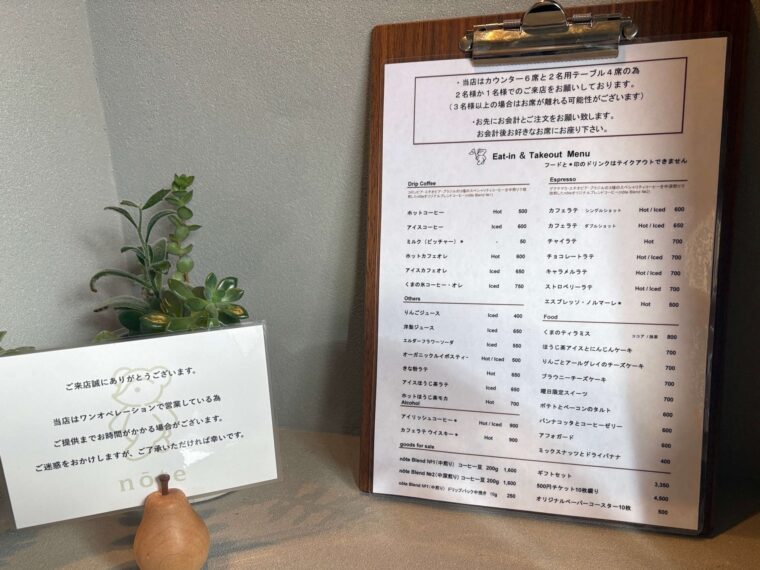 ・当店はカウンター6席と2名用テーブル4席の為
2名様か1名様でのご来店をお願いしております。
（3名様以上の場合はお席が離れる可能性がございます）
・お先にお会計とご注文をお願い致します。
お会計後お好きなお席にお座り下さい。
Eat-in & Takeout Menu
フードと＊印のドリンクはテイクアウトできません
Drip Coffee
ホットコーヒー Hot 500
アイスコーヒー Iced 600
ミルク（ピッチャー）＊ - 50
ホットカフェオレ Hot 600
アイスカフェオレ Iced 650
くまの氷コーヒー・オレ Iced 750
Others
りんごジュース Iced 400
洋梨ジュース Iced 650
エルダーフラワーソーダ Iced 550
オーガニックルイボスティ- Hot / Iced 500
きな粉ラテ Hot 650
アイスほうじ茶ラテ Iced 650
ホットほうじ茶モカ Hot 700
Alcohol
アイリッシュコーヒー＊ Hot / Iced 900
カフェラテ ウイスキー＊ Hot 900
Espresso
カフェラテ シングルショット Hot / Iced 600
カフェラテ ダブルショット Hot / Iced 650
チャイラテ Hot 700
チョコレートラテ Hot / Iced 700
キャラメルラテ Hot / Iced 700
ストロベリーラテ Hot / Iced 700
エスプレッソ・ノルマーレ＊ Hot 600
Food
くまのティラミス ココア / 抹茶 800
ほうじ茶アイスとにんじんケーキ 700
りんごとアールグレイのチーズケーキ 700
ブラウニーチーズケーキ 700
曜日限定スイーツ 700
ポテトとベーコンのタルト 600
パンナコッタとコーヒーゼリー 600
アフォガード 600
ミックスナッツとドライバナナ 400
goods for sale
nôte Blend №1（中煎り）コーヒー豆 200g 1,600
nôte Blend №2（中深煎り）コーヒー豆 200g 1,600
nôte Blend №1（中煎り）ドリップバック中挽き 15g 250
ギフトセット 3,350
500円チケット10枚綴り 4,500
オリジナルペーパーコースター10枚 500
ご来店誠にありがとうございます。
当店はワンオペレーションで営業している為
ご提供までお時間がかかる場合がございます。
ご迷惑をおかけしますが、ご了承いただければ幸いです。
nōte